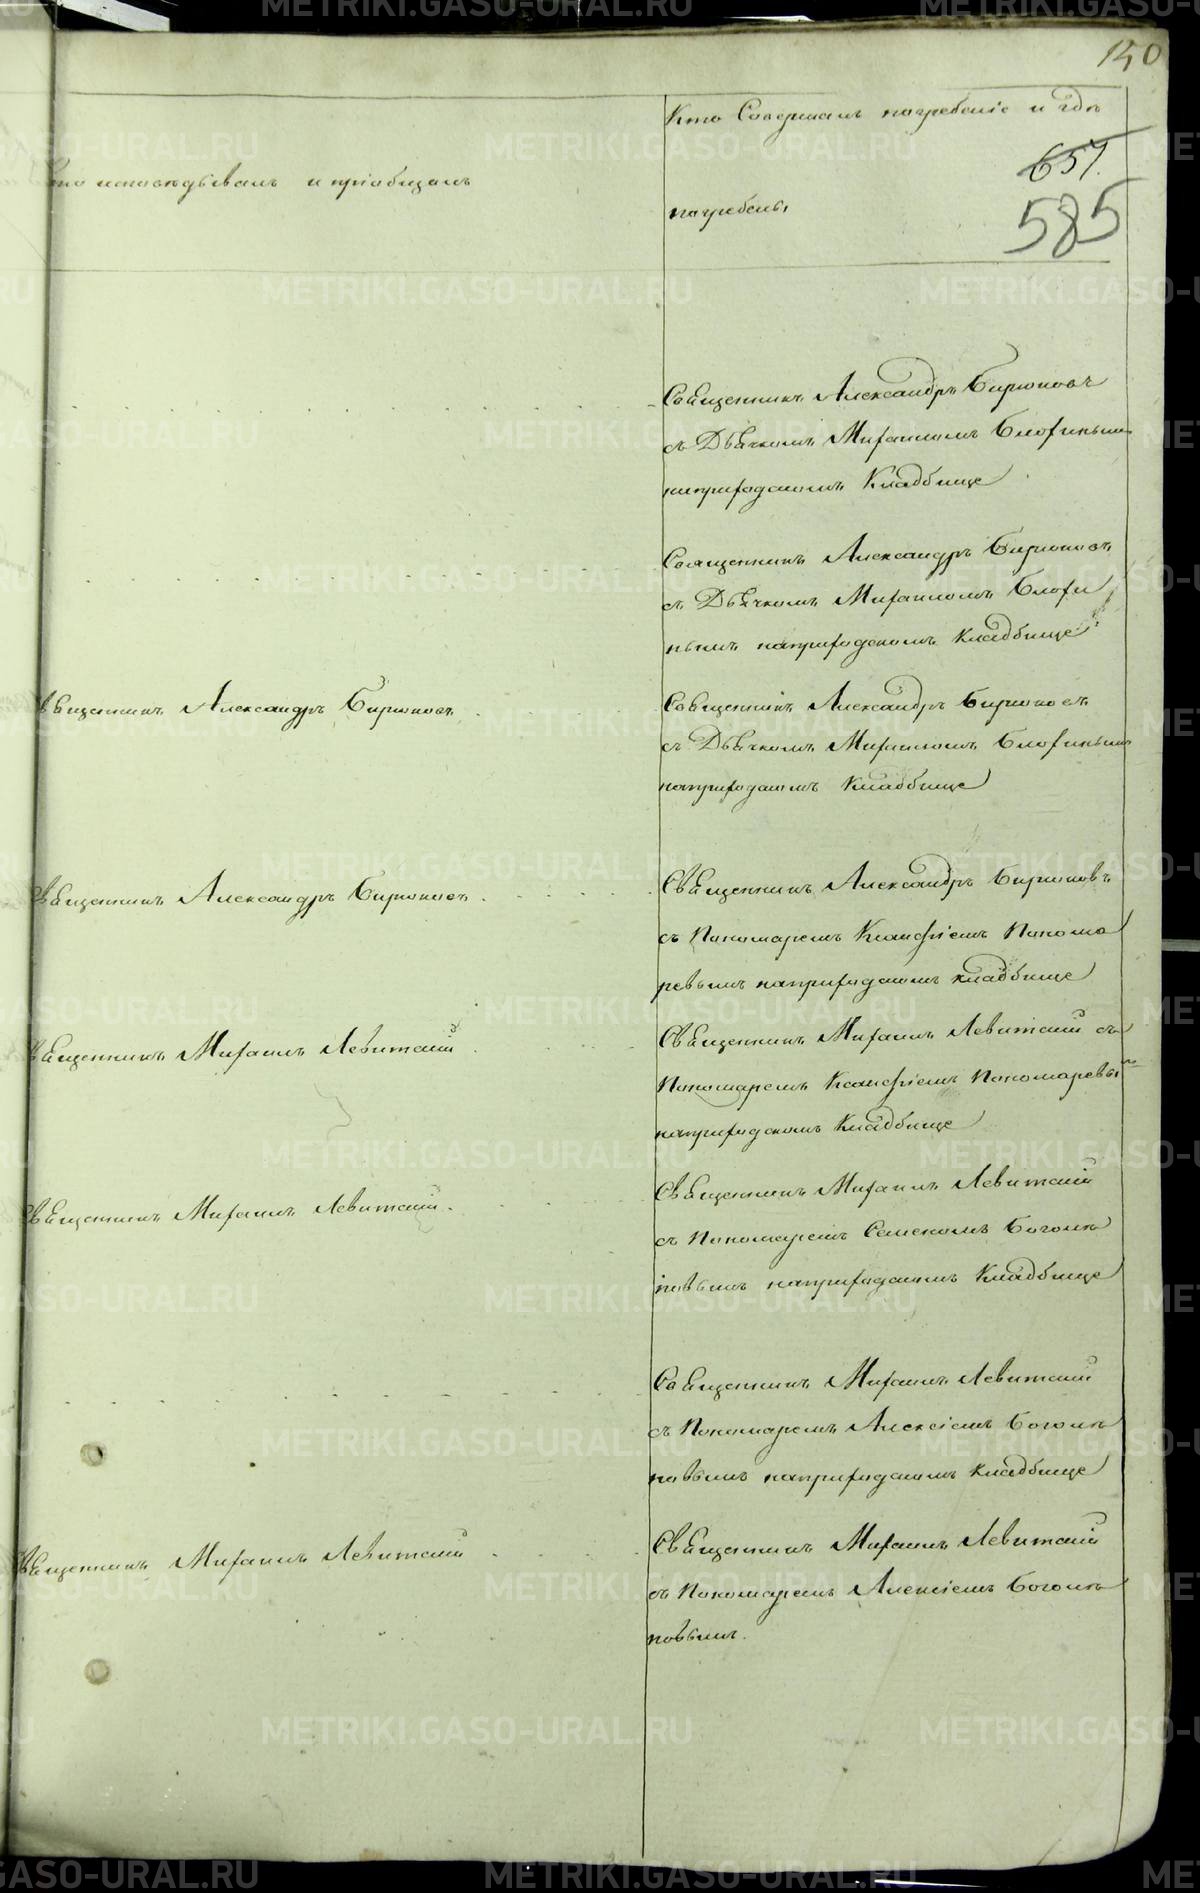 150
Кто исповѣдывалъ и пріобщалъ
Кто Совершалъ погребеніе и гдѣ
погребены
657.
585
Священникъ Александръ Бирюковъ
съ Дьячкомъ Михаиломъ
наприходскомъ Кладбище
Священникъ Александръ Бирюковъ
съ Дьячкомъ Михаиломъ
нымъ наприходскомъ Кладбище
Священникъ Александръ Бирюковъ
Священникъ Александръ Бирюковъ
съ Дьячкомъ Михаиломъ
наприходскомъ Кладбище
Священникъ Александръ Бирюковъ
Священникъ Александръ Бирюковъ
съ Пономаремъ Понома
ревымъ наприходскомъ кладбище
Священникъ Михаилъ Левитскій
Священникъ Михаилъ Левитскій съ
Пономаремъ Пономаревы
наприходскомъ Кладбище
Священникъ Михаилъ Левитскій.
Священникъ Михаилъ Левитскій
съ Пономаремъ Боголѣ
повымъ наприходскомъ Кладбище
Священникъ Михаилъ Левитскій
съ Пономаремъ Алексіемъ Боголѣ
повымъ наприходскомъ Кладбище
Священникъ Михаилъ Левитскій
Священникъ Михаилъ Левитскій
съ Пономаремъ Алексіемъ Боголѣ
повымъ.
METRIKI.GASO-URAL.RU